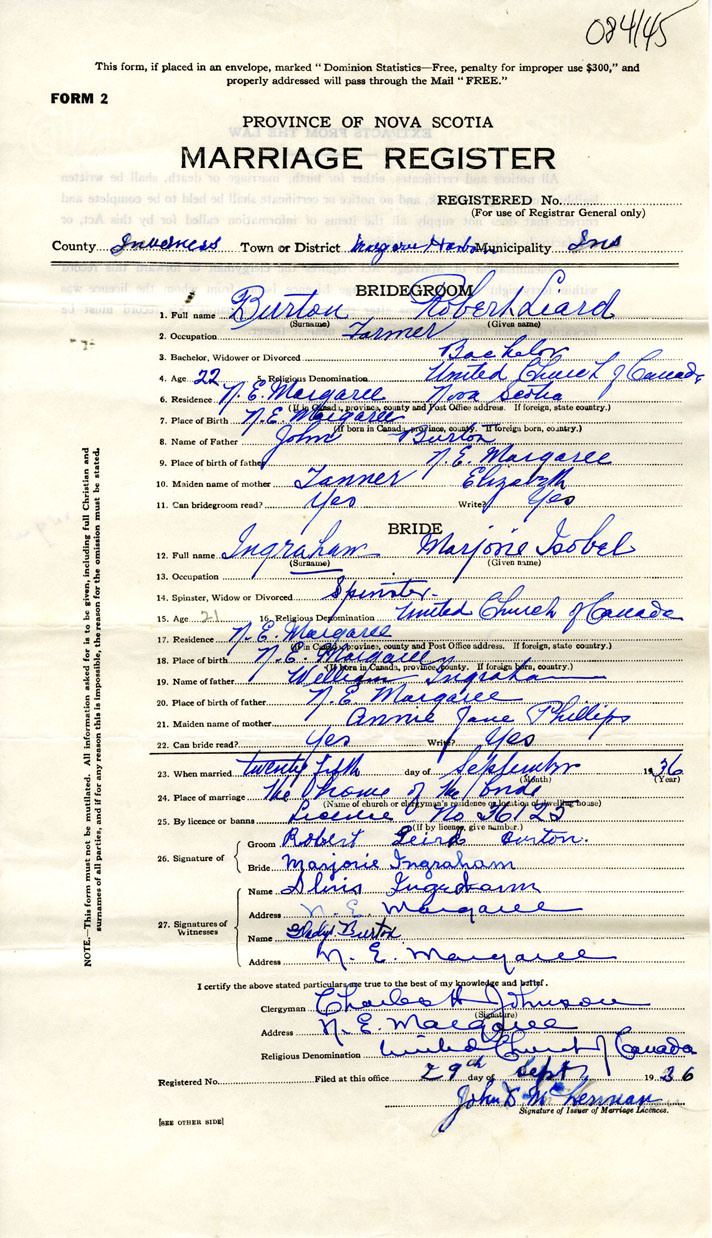 084145
This form, if placed in an envelope, marked "Dominion Statistics—Free, penalty for improper use $300," and
properly addressed will pass through the Mail "FREE."
FORM 2
PROVINCE OF NOVA SCOTIA
MARRIAGE REGISTER
REGISTERED No.
(For use of Registrar General only)
County Inverness Town or District Margaree Harbor Municipality Inv
BRIDEGROOM
1. Full name Burton Robert Liard
(Surname) (Given name)
2. Occupation Farmer
3. Bachelor, Widower or Divorced Bachelor
4. Age 22 5. Religious Denomination United Church of Canada
6. Residence N.E. Margaree Nova Scotia
(If in Canada, province, county and Post Office address. If foreign, state country.)
7. Place of Birth N.E. Margaree
(If born in Canada, province, county. If foreign born, country.)
8. Name of Father John Burton
9. Place of birth of father N.E. Margaree
10. Maiden name of mother Tanner Elizabeth
11. Can bridegroom read? Yes Write? Yes
BRIDE
12. Full name Ingraham Marjorie Isobel
(Surname) (Given name)
13. Occupation
14. Spinster, Widow or Divorced Spinster.
15. Age 21 16. Religious Denomination United Church of Canada
17. Residence N.E. Margaree
(If in Canada, province, county and Post Office address. If foreign, state country.)
18. Place of birth N.E. Margaree
(If born in Canada, province, county. If foreign born, country.)
19. Name of father William Ingraham
20. Place of birth of father N.E. Margaree
21. Maiden name of mother Annie Jane Phillips
22. Can bride read? Yes Write? Yes
23. When married twenty fifth day of September 1936
(Month) (Year)
24. Place of marriage The home of the bride
(Name of church or clergyman's residence or location of dwelling house)
25. By licence or banns Licence No 36125
(If by licence, give number.)
26. Signature of
Groom Robert Burton.
Bride Marjorie Ingraham
27. Signatures of Witnesses
Name Ingraham
Address N.E. Margaree
Name Gladys Burton
Address N.E. Margaree
I certify the above stated particulars are true to the best of my knowledge and belief.
Clergyman Charles H Johnson
(Signature)
Address N.E. Margaree
Religious Denomination United Church of Canada
Registered No. Filed at this office 29th day of Sept 1936
John D McLennan
Signature of Issuer of Marriage Licences.
[SEE OTHER SIDE]
NOTE.—This form must not be mutilated. All information asked for is to be given, including full Christian and
surnames of all parties, and if for any reason this is impossible, the reason for the omission must be stated.